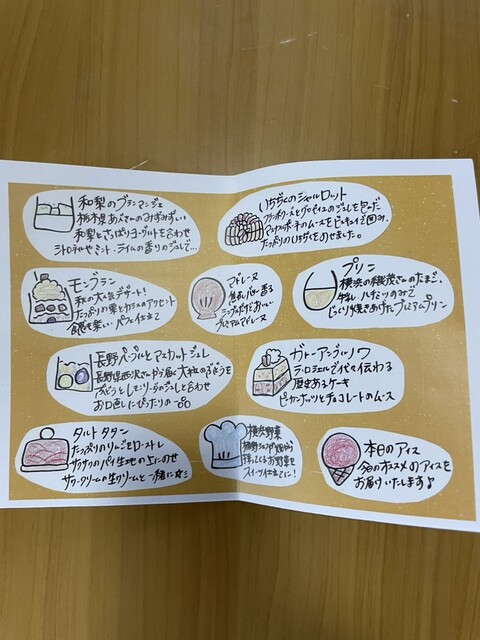 和梨のブランマンジェ
栃木県あべさんのみずみずしい
和梨とさっぱりヨーグルトを合わせ
シトロネルやミント、ライムの香りのジュレで…
いちぢくのシャルロット
フランボワーズとグロゼイユのジュレを包んだ
マスカルポーネのムースをビスキュイで囲み
たっぷりのいちぢくをのせました。
モンブラン
秋の大人気デザート!
たっぷりの栗とカシスのアクセント
食感も楽しいパフェ仕立て
マドレーヌ
焦がしバター香る
シンプルだけどおいしい
プレミアムマドレーヌ
プリン
横浜の織茂さんのたまご、
牛乳、ハチミツのみで
じっくり焼きあげたプレミアムプリン
長野パープルとマスカットジュレ
長野県西沢さんから届く大粒のぶどうを
ぶどうとレモンリーフのジュレと合わせ
お口直しにぴったりの
ガトーアンプルノワ
ラ・ロシェルで代々伝わる
歴史あるケーキ
ピーカンナッツとチョコレートのムース
タルトタタン
たっぷりのりんごをローストし
サクサクのパイ生地の上にのせ
サワークリームの生クリームと一緒に☆ミ
横浜野菜
スイーツ仕立てに!
本日のアイス
今日のオススメのアイスを
お届けいたします♪